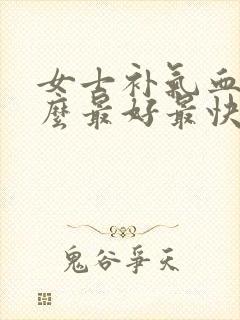 女士补氣血
麼最好最快
鬼谷爭天